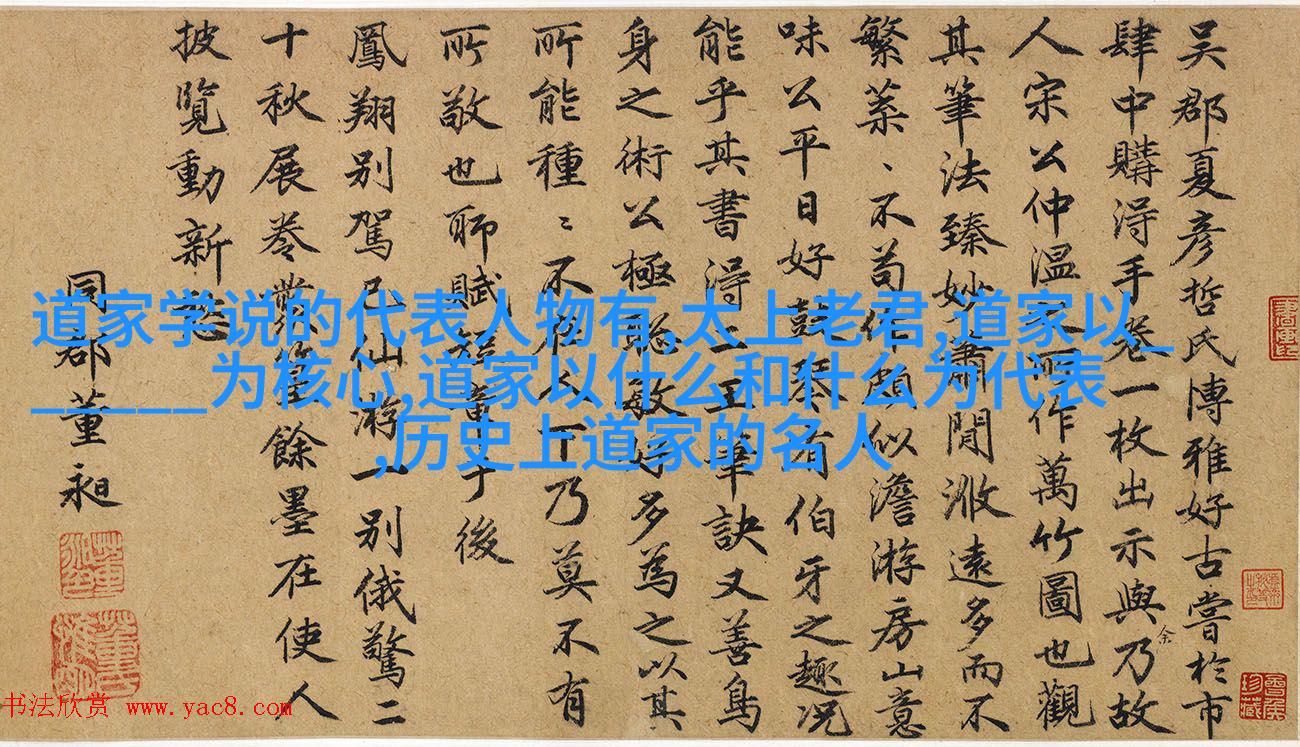 吴郡夏彦哲氏博雅好古嘗於市
肆中購得手卷一枚出示與乃故
余
人宋公仲溫所作萬竹圖也觀
其筆法臻妙蕭閒淡遠多而不
繁菉、不苟作頗似澹游房山意
味公平日好鼓琴有伯牙之趣况
能乎其書得二王筆訣又善烏
身之術公極聰敏好多為之以其
所能種〻不於人下乃莫不有
所敬也聊賦短章于後
鳳翔別駕已仙游一別俄驚二
十秋展卷餘墨在使人
披覽動新愁
同郡董昶
道家学说的代表人物有,太上老君,道家以_
_____为核心,道家以什么和什么为代表
,历史上道家的名人
书法欣赏 www.yac8.com